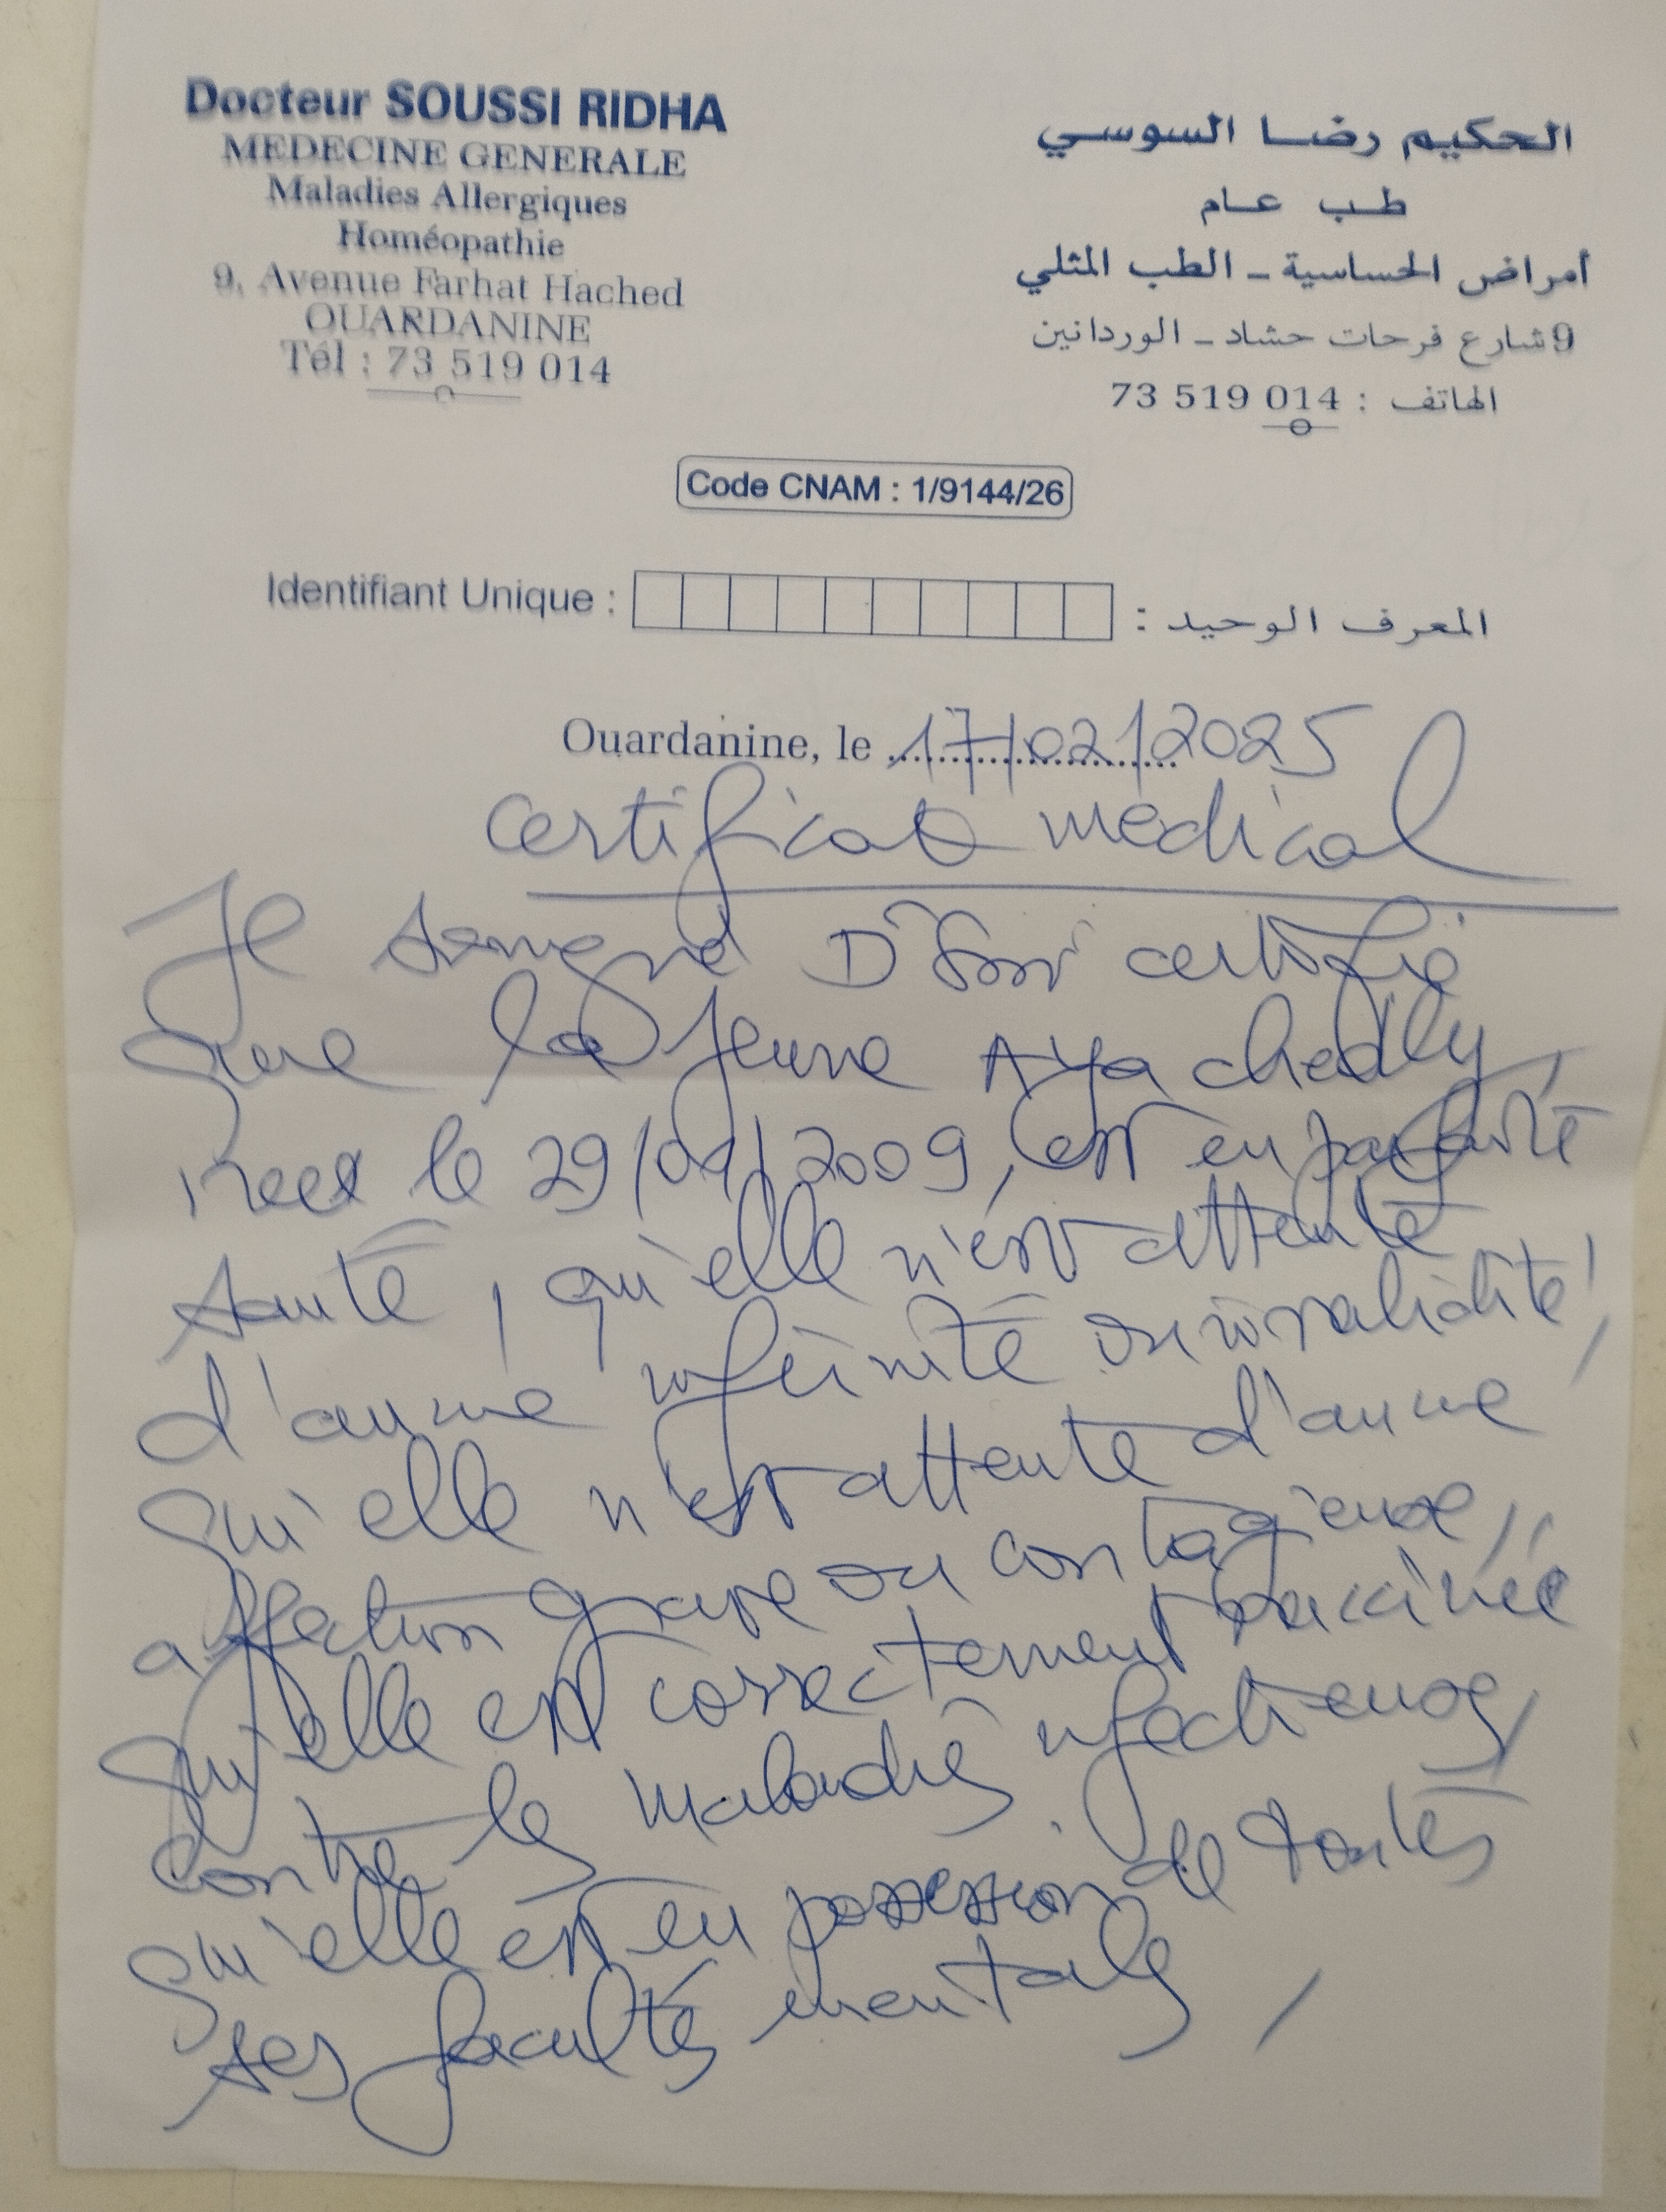 Docteur SOUSSI RIDHA
MEDECINE GENERALE
Maladies Allergiques
Homéopathie
9, Avenue Farhat Hached
OUARDANINE
Tél : 73 519 014
الحكيم رضا السوسي
طب عام
أمراض الحساسية - الطب المثلي
9 شارع فرحات حشاد - الوردانين
الهاتف : 73 519 014
Code CNAM : 1/9144/26
Identifiant Unique : المعرف الوحيد :
Ouardanine, le 17/02/2025
certificat médical
Je soussigné Dr certifie
que la jeune Aya chedly,
née le 29/ /2009, est en parfaite
santé, qu'elle n'est atteinte
d'aucune infirmité ou invalidité,
qu'elle n'est atteinte d'aucune
affection grave ou contagieuse,
qu'elle est correctement vaccinée
contre les maladies infectieuses,
qu'elle est en possession de toutes
ses facultés mentales,